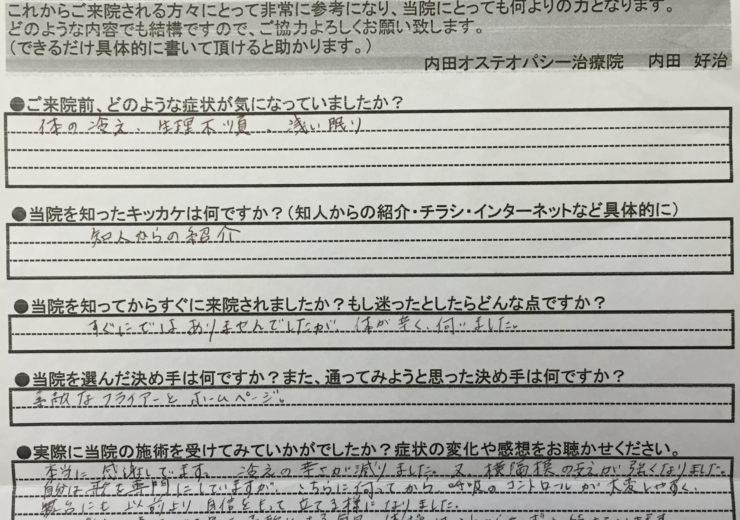 これからご来院される方々にとって非常に参考になり、当院にとっても何よりの力となります。
どのような内容でも結構ですので、ご協力よろしくお願い致します。
（できるだけ具体的に書いて頂けると助かります。）
内田オステオパシー治療院　内田　好治
●ご来院前、どのような症状が気になっていましたか？
体の冷え、生理不順、浅い眠り
●当院を知ったキッカケは何ですか？（知人からの紹介・チラシ・インターネットなど具体的に）
知人からの紹介
●当院を知ってからすぐに来院されましたか？もし迷ったとしたらどんな点ですか？
すぐにではありませんでしたが、体が辛く、伺いました。
●当院を選んだ決め手は何ですか？また、通ってみようと思った決め手は何ですか？
素敵なフライアーとホームページ。
●実際に当院の施術を受けてみていかがでしたか？症状の変化や感想をお聴かせください。
本当に感謝してます。冷えの辛さが減りました。又、横隔膜の支えが強くなりました。
自分は歌を専門にしていますが、こちらに伺ってから呼吸のコントロールが大変しやすく、
舞台にも以前より自信をもって立てる様になりました。